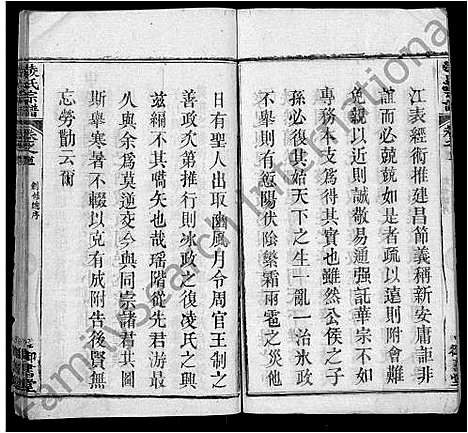 江表經術推建昌節義稱新安庸詎非
誼而必兢兢如是者疏以遠則附會難
免親以近則誠敬易通强託華宗不如
專務本支為得其實也雖然公侯之子
孫必復其始天下之生一亂一治氷政
不舉則有愆陽伏陰縈霜雨雹之災他
日有聖人出取豳風月令周官王制之
善政次第推行則氷政之復凌氏之興
玆編不其嚆矢也哉瑤階從先君游最
久與余為莫逆交今與同宗諸君共圖
斯舉寒暑不輟以克有成附告後賢無
忘勞勩云爾
凌氏宗譜
卷之首
創修總序
Familysearch International